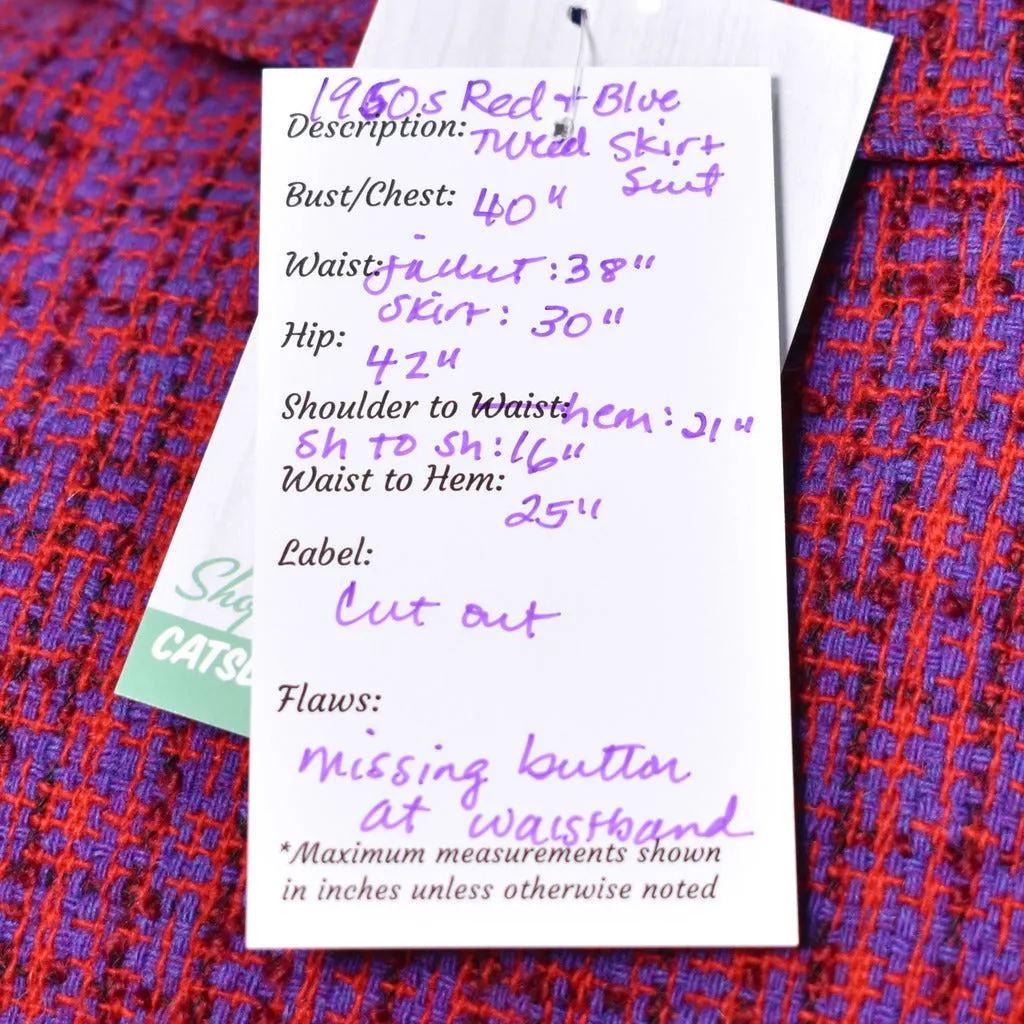 1960s Red + Blue
Description: Tweed Skirt
Suit
Bust/Chest: 40"
Waist: jacket : 38"
skirt : 30"
Hip:
42"
Shoulder to Waist: hem : 21"
Sh to Sh : 16"
Waist to Hem:
25"
Label:
Cut out
Flaws:
missing button
at waistband
*Maximum measurements shown
in inches unless otherwise noted